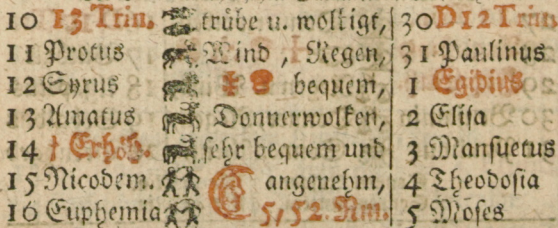 10 13 Trin. trübe u. wolkigt, 30 D 12 Trin.
11 Protus Wind, Regen, 31 Paulinus
12 Syrus bequem, 1 Egidius
13 Amatus Donnerwolken, 2 Elisa
14 † Erhöh. sehr bequem und 3 Mansuetus
15 Nicodem. angenehm, 4 Theodosia
16 Euphemia 5,52. Nm. 5 Moses